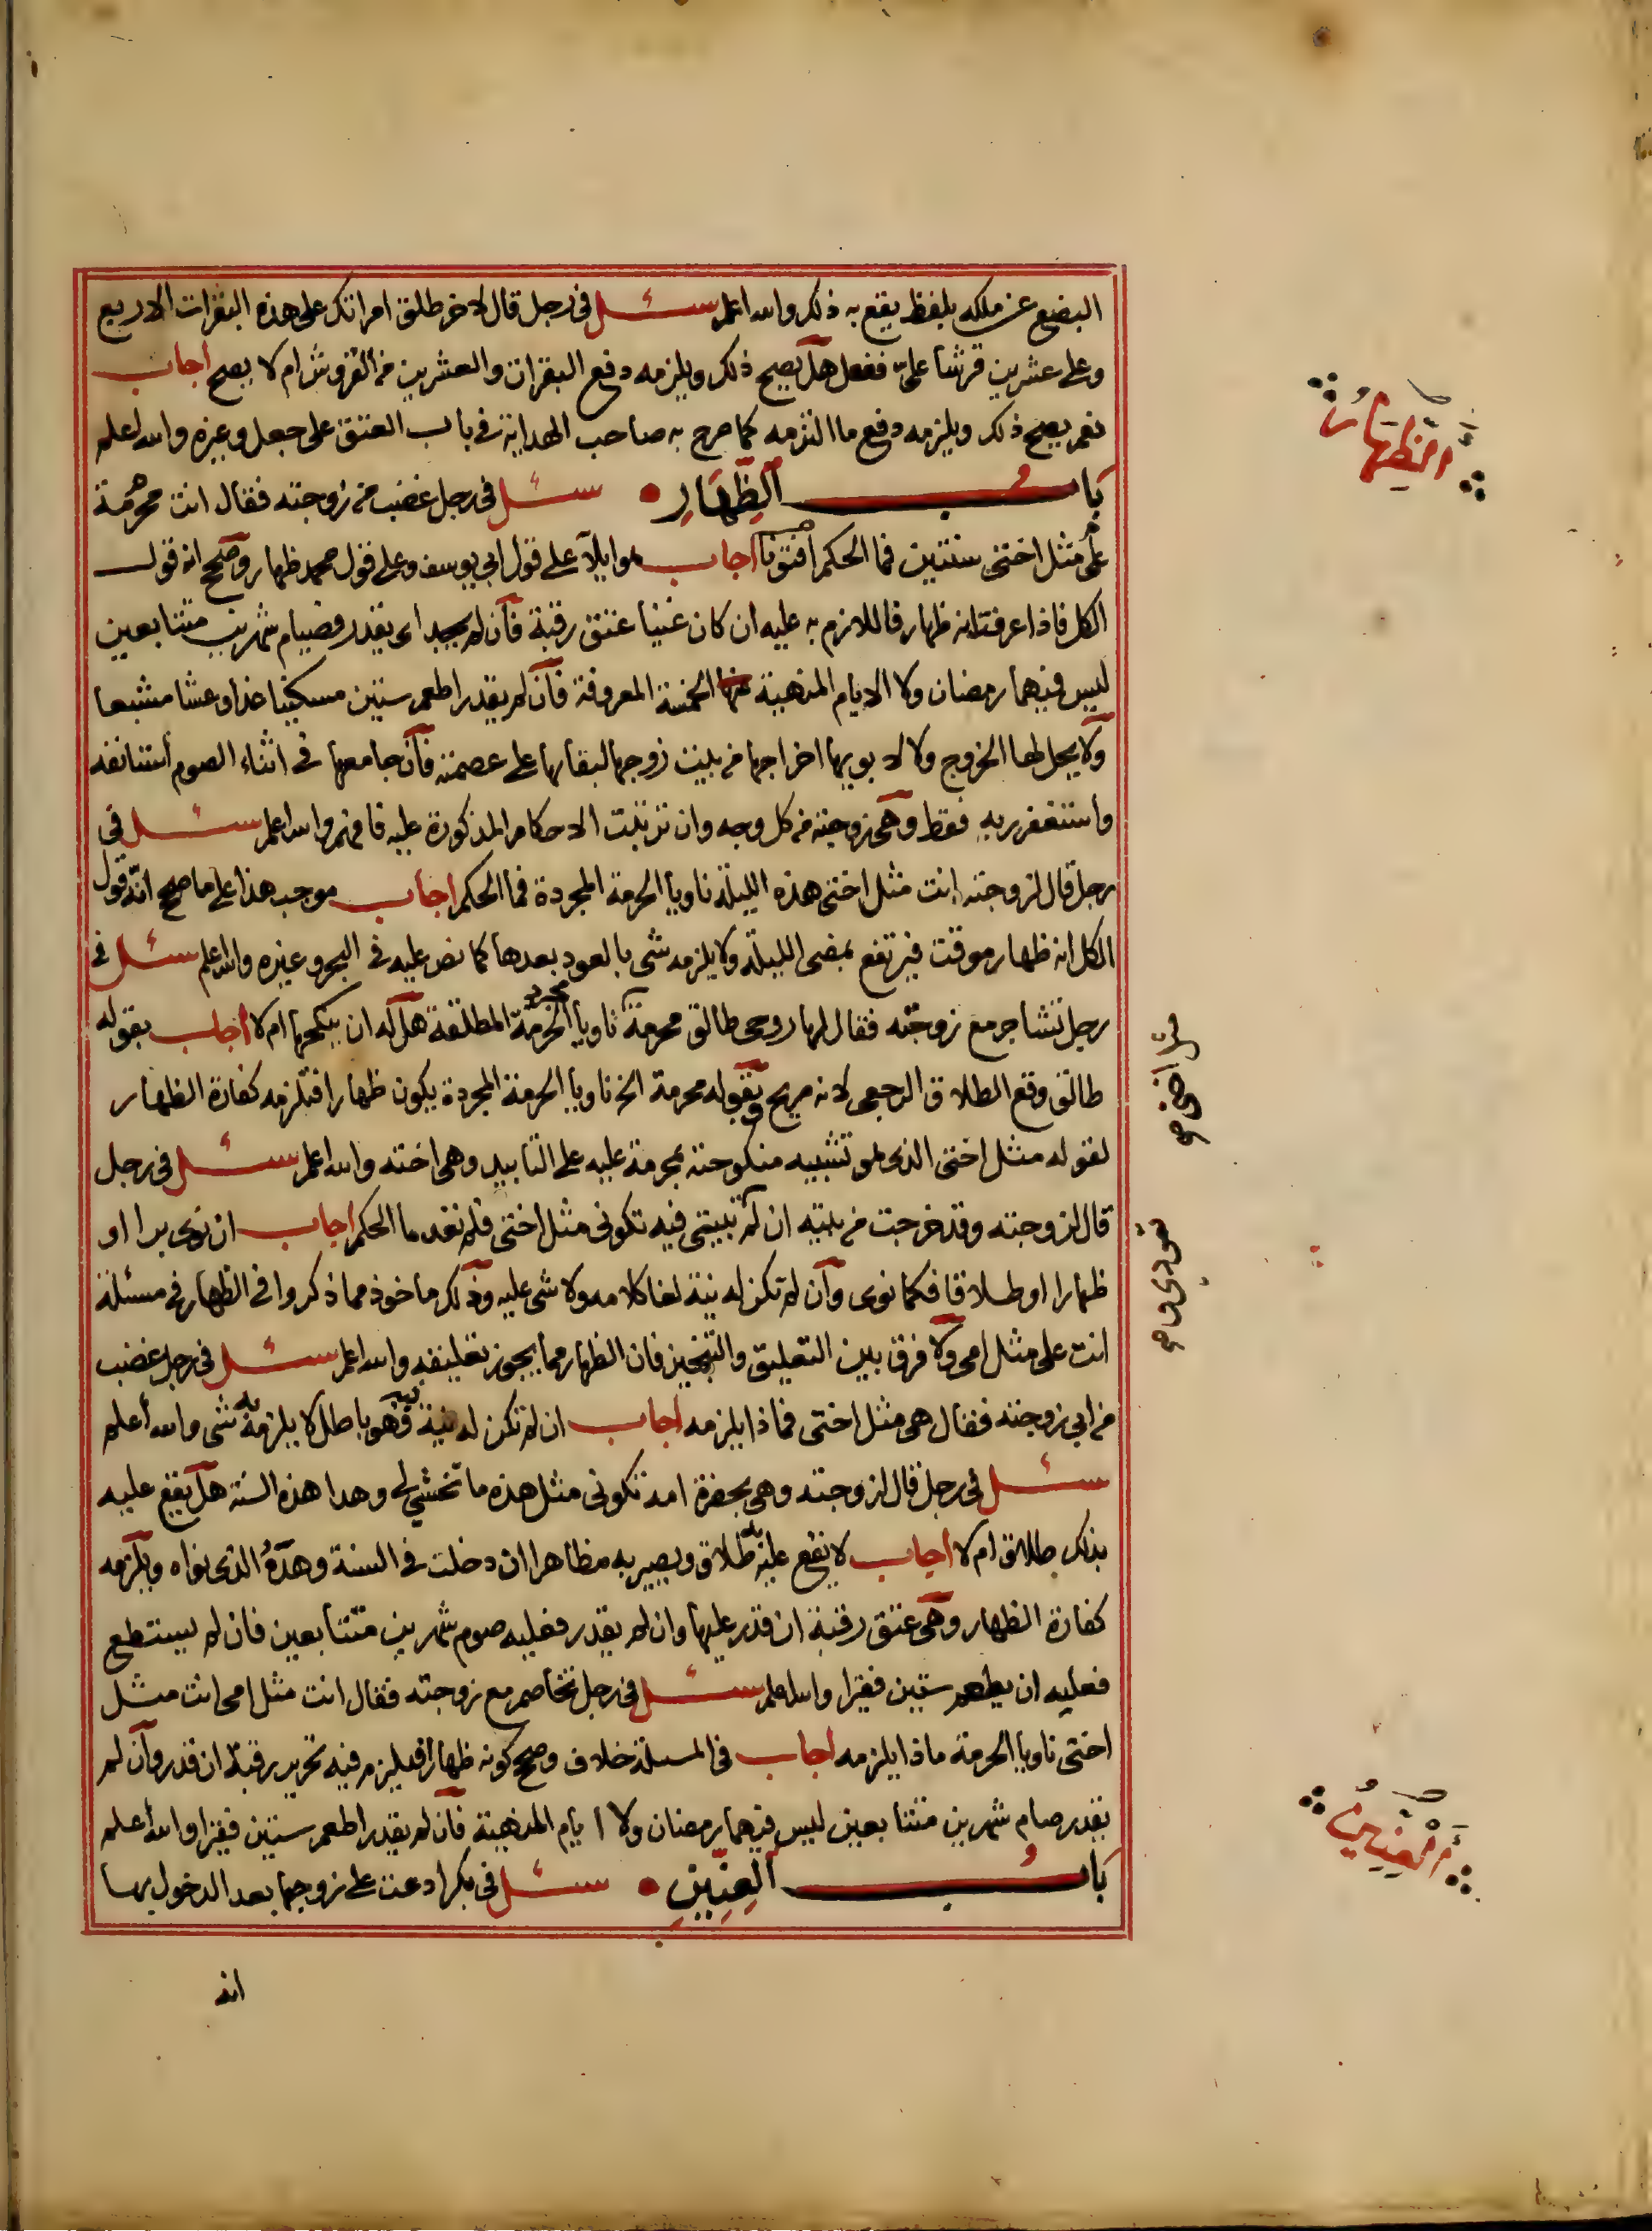 البضع عن ملكه بلفظ يقع به ذلك والله اعلم سئل في رجل قال لاخر طلق امراتك على هذه البقرات الاربع
وعلى عشرين قرشا علىّ ففعل هل يصح ذلك ويلزمه دفع البقرات والعشرين من القروش ام لا يصح اجاب
نعم يصح ذلك ويلزمه دفع ما التزمه كما صرح به صاحب الهداية في باب العتق على جعل وغيره والله اعلم
باب الظهار سئل في رجل غضب من زوجته فقال انت محرمة
علىّ مثل اختى سنتين فما الحكم افتونا اجاب هو ايلاء على قول ابي يوسف وعلى قول محمد ظهار وصحح انه قول
الكل فاذا عرفت انه ظهار فاللازم به عليه ان كان غنيا عتق رقبة فان لم يجد اى يقدر فصيام شهرين متتابعين
ليس فيهما رمضان ولا الايام المنهية الخمسة المعروفة فان لم يقدر اطعم ستين مسكينا غدا وعشا مشبعا
ولا يحل لها الخروج ولا لابويها اخراجها من بيت زوجها لبقائها على عصمته فان جامعها في اثناء الصوم استانفه
واستغفر ربه فقط وهى زوجته من كل وجه وان ترتبت الاحكام المذكورة عليه فافهم والله اعلم سئل في
رجل قال لزوجته انت مثل اختى هذه الليلة ناويا الحرمة المجردة فما الحكم اجاب موجب هذا على ما صحح انّه قول
الكل انه ظهار موقت فيرتفع بمضى الليلة ولا يلزمه شى بالعود بعدها كما نص عليه في البحر وغيره والله اعلم سئل في
رجل تشاجر مع زوجته فقال لها روحى طالق محرمة ناويا مجرد الحرمة المطلقة هل له ان ينكحها ام لا اجاب بقوله
طالق وقع الطلاق الرجعى لانه صريح وبقوله محرمة الخ ناويا الحرمة المجردة يكون ظهارا فتلزمه كفارة الظهار
لقوله مثل اختى الذى هو تشبيه منكوحته بمحرمة عليه على التابيد وهى اخته والله اعلم سئل في رجل
قال لزوجته وقد خرجت من بيته ان لم تبيتى فيه تكونى مثل اختى فلم تعد ما الحكم اجاب ان نوى برا او
ظهارا او طلاقا فكما نوى وان لم تكن له نية لغا كلامه ولا شى عليه وذلك ماخوذ مما ذكروا في الظهار في مسئلة
انت على مثل امى ولا فرق بين التعليق والتنجيز فان الظهار مما يجوز تعليقه والله اعلم سئل في رجل غضب
من ابي زوجته فقال هى مثل اختى فماذا يلزمه اجاب ان لم تكن له نية فهو باطل لا يلزمه به شى والله أعلم
سئل في رجل قال لزوجته وهى بحضرة امه تكونى مثل هذه ما تخشى لى وهدا هذه السنة هل يقع عليه
بذلك طلاق ام لا اجاب لا يقع عليه به طلاق ويصير به مظاهرا ان دخلت في السنة وهدة الذى نواه ويلزمه
كفارة الظهار وهى عتق رقبة ان قدر عليها وان لم يقدر فعليه صوم شهرين متتابعين فان لم يستطع
فعليه ان يطعم ستين فقيرا والله اعلم سئل في رجل تخاصم مع زوجته فقال انت مثل امى انت مثل
اختى ناويا الحرمة ماذا يلزمه اجاب في المسئلة خلاف وصحح كونه ظهارا فيلزم فيه تحرير رقبة ان قدر وان لم
يقدر صام شهرين متتابعين ليس فيهما رمضان ولا ايام المنهية فان لم يقدر اطعم ستين فقيرا والله أعلم
باب العنين سئل في بكر ادعت على زوجها بعد الدخول بها
انه
الظهار
العنين